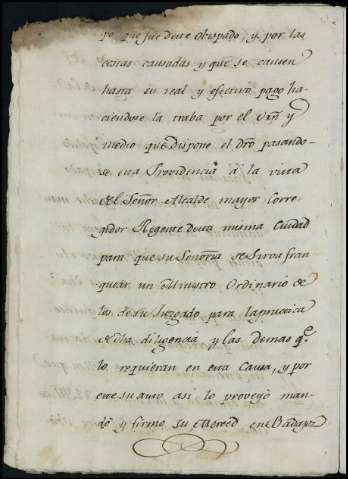 po que fue deste Obispado, y por las
costas causadas y que se causen
hasta su real y efectivo pago ha-
ciendose la traba por el orñ y
medio que dispone el dro pasando-
se esta Providencia á la vista
del Señor Alcalde mayor Corre-
gidor Regente desta misma Ciudad
para que su Señoria se sirva fran-
quear un Ministro Ordinario de
los de su Juzgado para la practica
desta diligencia, y las demas q.e
lo requieran en esta Causa, y por
este su auto asi lo proveyó man-
dó y firmó su Merced en Badajoz